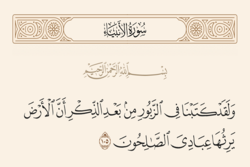 سُورَةُ الأَنبِيَاءِ
بِسْمِ اللَّهِ الرَّحْمَٰنِ الرَّحِيمِ
وَلَقَدْ كَتَبْنَا فِي الزَّبُورِ مِنْ بَعْدِ الذِّكْرِ أَنَّ الْأَرْضَ
يَرِثُهَا عِبَادِيَ الصَّالِحُونَ ١٠٥